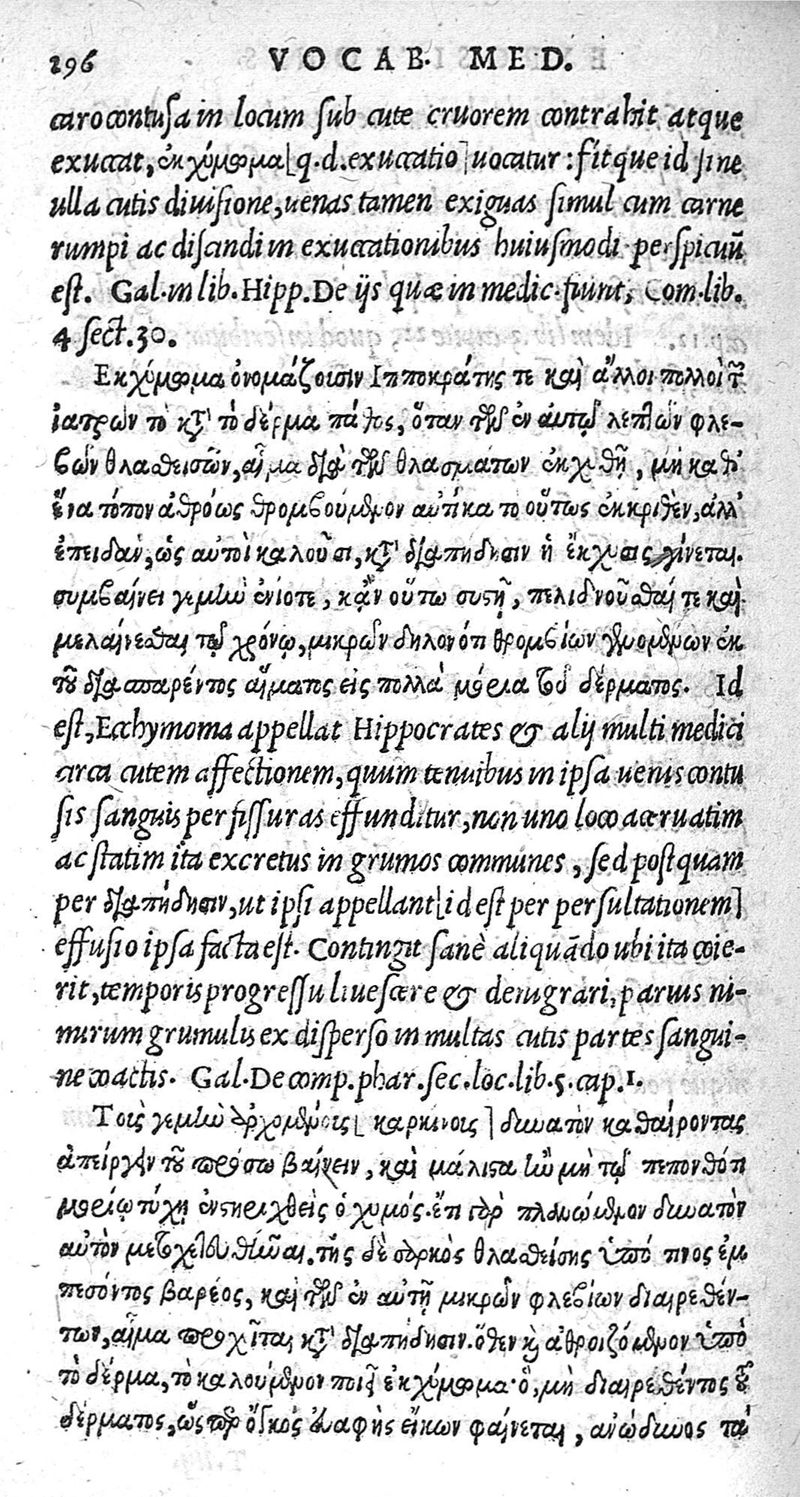 296 VOCAB. MED.
caro contusa in locum sub cute cruorem contrahit atque
exuccat, ἐκχύμωμα [q.d. exuccatio] uocatur: fitque id sine
ulla cutis diuisione, uenas tamen exiguas simul cum carne
rumpi ac discindi in exuccationibus huiusmodi perspicuũ
est. Gal. in lib. Hipp. De ijs quæ in medic. fiunt, Com. lib.
4 sect. 30.
Εκχύμωμα ὀνομάζουσιν Ιπποκράτης τε καὶ ἄλλοι πολλοὶ τῶν
ἰατρῶν τὸ κατὰ τὸ δέρμα πάθος, ὅταν τῶν ἐν αὐτῷ λεπτῶν φλε-
βῶν θλασθεισῶν, αἷμα διὰ τῶν θλασμάτων ἐκχυθῇ, μὴ καθ'
ἕνα τόπον ἀθρόως θρομβούμενον αὐτίκα τὸ οὕτως ἐκκριθὲν, ἀλλ'
ἐπειδὰν, ὡς αὐτοὶ καλοῦσι, κατὰ διαπήδησιν ἡ ἔκχυσις γίνεται.
συμβαίνει γεμὴν ἐνίοτε, κᾂν οὕτω συστῇ, πελιδνοῦσθαί τε καὶ
μελαίνεσθαι τῷ χρόνῳ, μικρῶν δηλονότι θρομβίων γενομένων ἐκ
τοῦ διασπαρέντος αἵματος εἰς πολλὰ μόρια τοῦ δέρματος. Id
est, Ecchymoma appellat Hippocrates & alij multi medici
circa cutem affectionem, quum tenuibus in ipsa uenis contu
sis sanguis per fissuras effunditur, non uno loco aceruatim
ac statim ita excretus in grumos communes, sed postquam
per διαπήδησιν, ut ipsi appellant [id est per persultationem]
effusio ipsa facta est. Contingit sanè aliquãdo ubi ita coie-
rit, temporis progressu liuescere & denigrari, paruis ni-
mirum grumulis ex disperso in multas cutis partes sangui-
ne coactis. Gal. De comp. phar. sec. loc. lib. 5. cap. 1.
Τοῖς γεμὴν ἀρχομένοις [καρκίνοις] δυνατὸν καθαίροντας
ἀπείργειν τοῦ πρόσω βαίνειν, καὶ μάλιστα ἢν μὴ τῷ πεπονθότι
μορίῳ τύχῃ ἐνστηριχθεὶς ὁ χυμός. ἔτι γὰρ πλανώμενον δυνατὸν
αὐτὸν μετοχετευθῆναι. τῆς δὲ σαρκὸς θλασθείσης ὑπό τινος ἐμ
πεσόντος βαρέος, καὶ τῶν ἐν αὐτῇ μικρῶν φλεβίων διαιρεθέν-
των, αἷμα προχεῖται κατὰ διαπήδησιν. ὅθεν καὶ ἀθροιζόμενον ὑπὸ
τὸ δέρμα, τὸ καλούμενον ποιεῖ ἐκχύμωμα. ὃ, μὴ διαιρεθέντος τοῦ
δέρματος, ὥσπερ ὄγκος ἁλαφὴς εἴκων φαίνεται, ἀνώδυνος τὰ